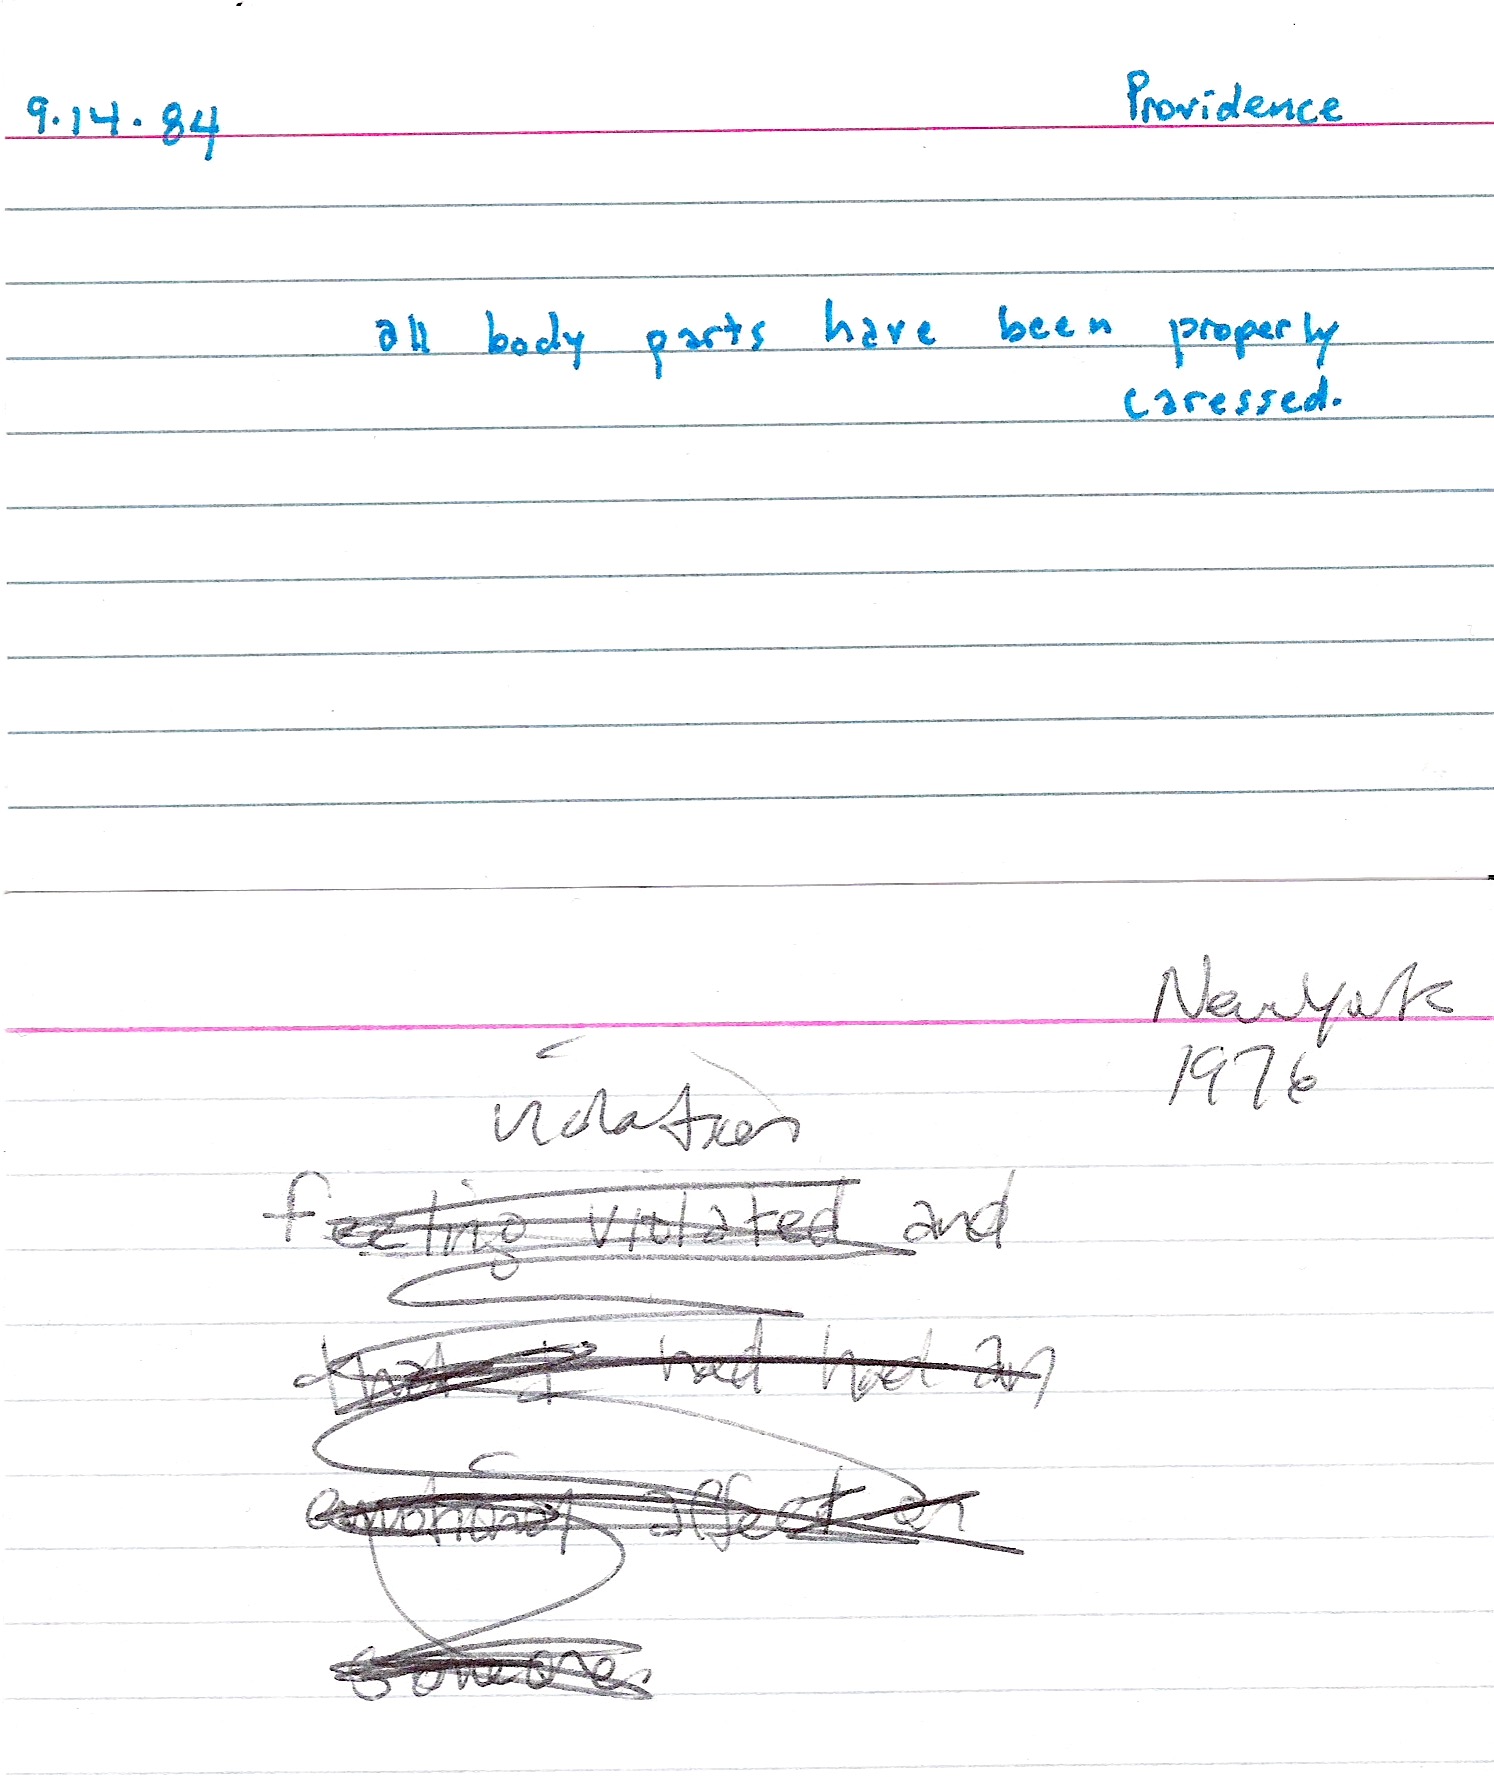 9.14.84 Providence
all body parts have been properly
caressed.
New York
1976
violation
feeling violated and
that I had had an
emotional affect on
someone